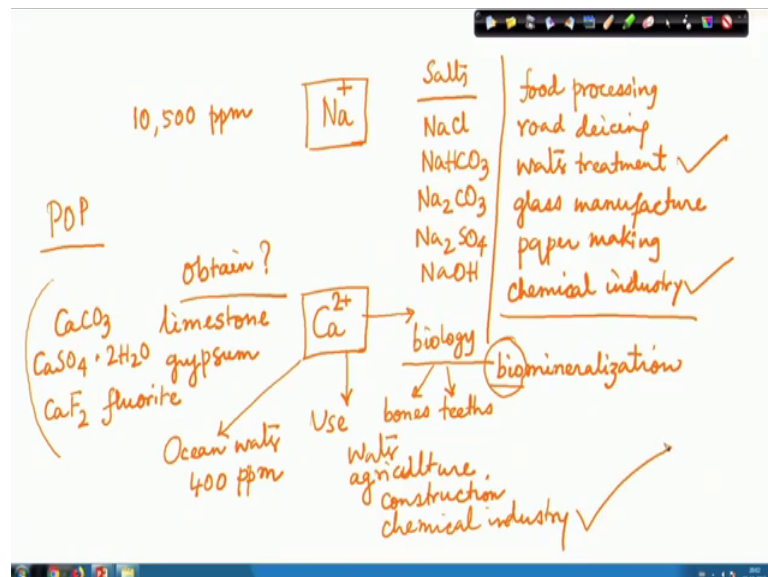 10,500 ppm
Na+
Salts
NaCl
NaHCO3
Na2CO3
Na2SO4
NaOH
food processing
road deicing
water treatment
glass manufacture
paper making
chemical industry
POP
obtain?
CaCO3 limestone
CaSO4 · 2H2O gypsum
CaF2 fluorite
Ca2+
biology
biomineralization
bones teeths
Use
Ocean water
400 ppm
Water
agriculture,
construction
chemical industry